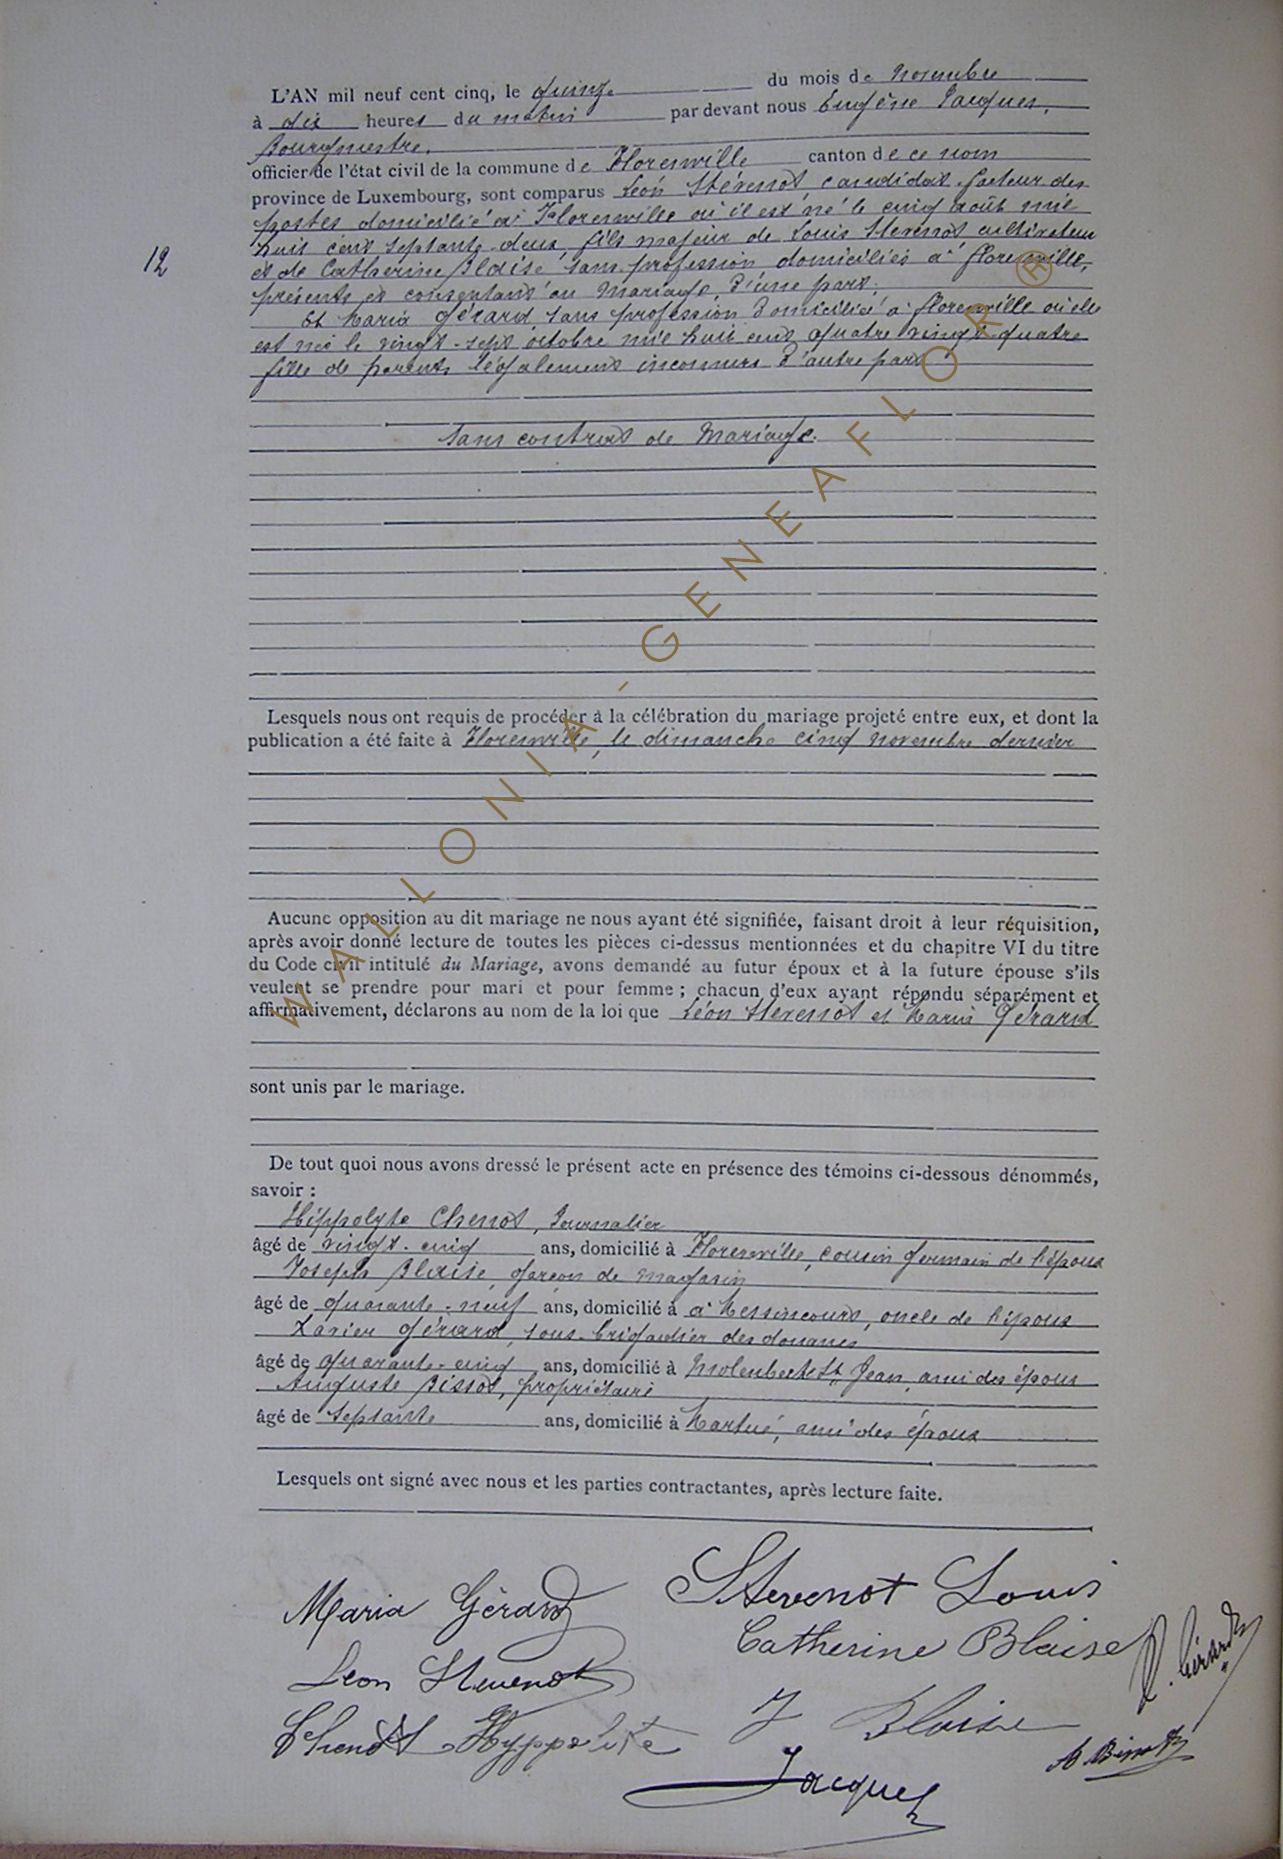 L'AN mil neuf cent cinq, le quinze du mois de novembre
à dix heures du matin par devant nous Eugène Jacques,
Bourgmestre,
officier de l'état civil de la commune de Florenville canton de ce nom
province de Luxembourg, sont comparus Léon Stévenot, candidat facteur des
postes domicilié à Florenville où il est né le cinq août mil
huit cent septante-deux, fils majeur de Louis Stévenot cultivateur
12
et de Catherine Blaise sans profession domiciliés à Florenville,
présents et consentant au mariage, d'une part;
Et Maria Gérard sans profession domiciliée à Florenville où elle
est née le vingt-sept octobre mil huit cent quatre vingt quatre
fille de parents légalement inconnus d'autre part
sans contrat de Mariage.
Lesquels nous ont requis de procéder à la célébration du mariage projeté entre eux, et dont la
publication a été faite à Florenville, le dimanche cinq novembre dernier
Aucune opposition au dit mariage ne nous ayant été signifiée, faisant droit à leur réquisition,
après avoir donné lecture de toutes les pièces ci-dessus mentionnées et du chapitre VI du titre
du Code civil intitulé du Mariage, avons demandé au futur époux et à la future épouse s'ils
veulent se prendre pour mari et pour femme ; chacun d'eux ayant répondu séparément et
affirmativement, déclarons au nom de la loi que Léon Stévenot et Maria Gérard
sont unis par le mariage.
De tout quoi nous avons dressé le présent acte en présence des témoins ci-dessous dénommés,
savoir :
Hippolyte Chenot, Journalier
âgé de vingt-cinq ans, domicilié à Florenville, cousin germain de l'époux
Joseph Blaise, garçon de magasin
âgé de quarante-neuf ans, domicilié à à Messincourt, oncle de l'époux
Xavier Gérard, sous-brigadier des douanes
âgé de quarante-cinq ans, domicilié à Molenbeek St Jean, ami des époux
Auguste Bissot, propriétaire
âgé de septante ans, domicilié à Martué, ami des époux
Lesquels ont signé avec nous et les parties contractantes, après lecture faite.
Maria Gérard Stevenot Louis
Catherine Blaise
Leon Stevenot X. Gérard
Chenot Hyppolite J Blaise
A Bissot
Jacques
WALLONIA-GENEAFLOR ®